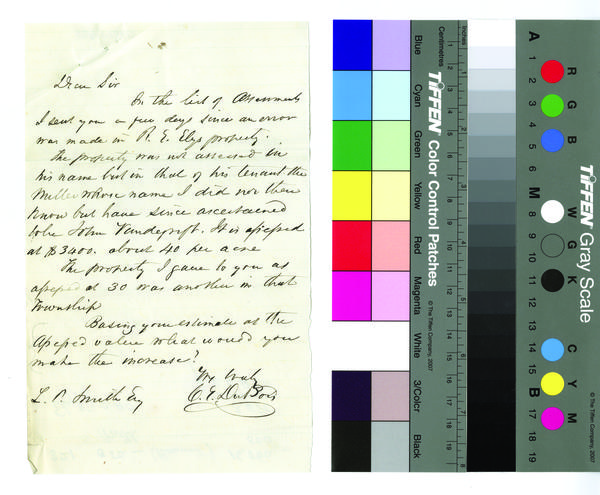 Dear Sir
In the list of Assessments
I sent you a few days since an error
was made in R. E. Elys property.
The property was not assessed in
his name but in that of his tenant the
Miller whose name I did not then
know but have since ascertained
to be John Vandegrift. It is assessed
at $3400. about 40 per acre
The property I gave to you as
assessed at 30 was another in that
Township
Basing your estimate at the
assessed value what would you
make the increase?
Yrs truly
L. P. Smith Esq C. E. DuBois
Blue
Cyan
Green
Yellow
Red
Magenta
White
3/Color
Black
TIFFEN Color Control Patches
© The Tiffen Company, 2007
Centimetres
Inches
1 2 3 4 5 6 7 8
A 1 2 3 4 5 6 M 8 9 10 11 12 13 14 15 B 17 18 19
R G B
W G K
C Y M
TIFFEN Gray Scale
© The Tiffen Company, 2007